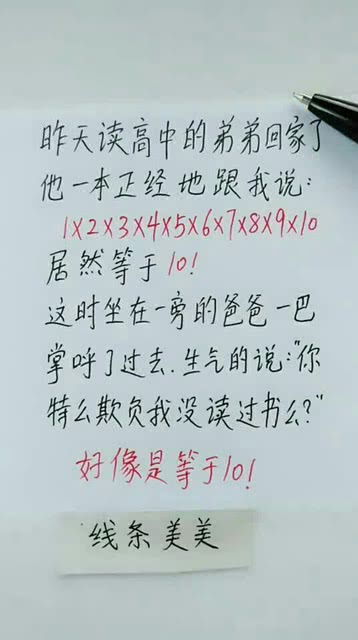 昨天读高中的弟弟回家了
他一本正经地跟我说:
1×2×3×4×5×6×7×8×9×10
居然等于10!
这时坐在一旁的爸爸一巴
掌呼了过去.生气的说:"你
特么欺负我没读过书么?"
好像是等于10!
线条美美